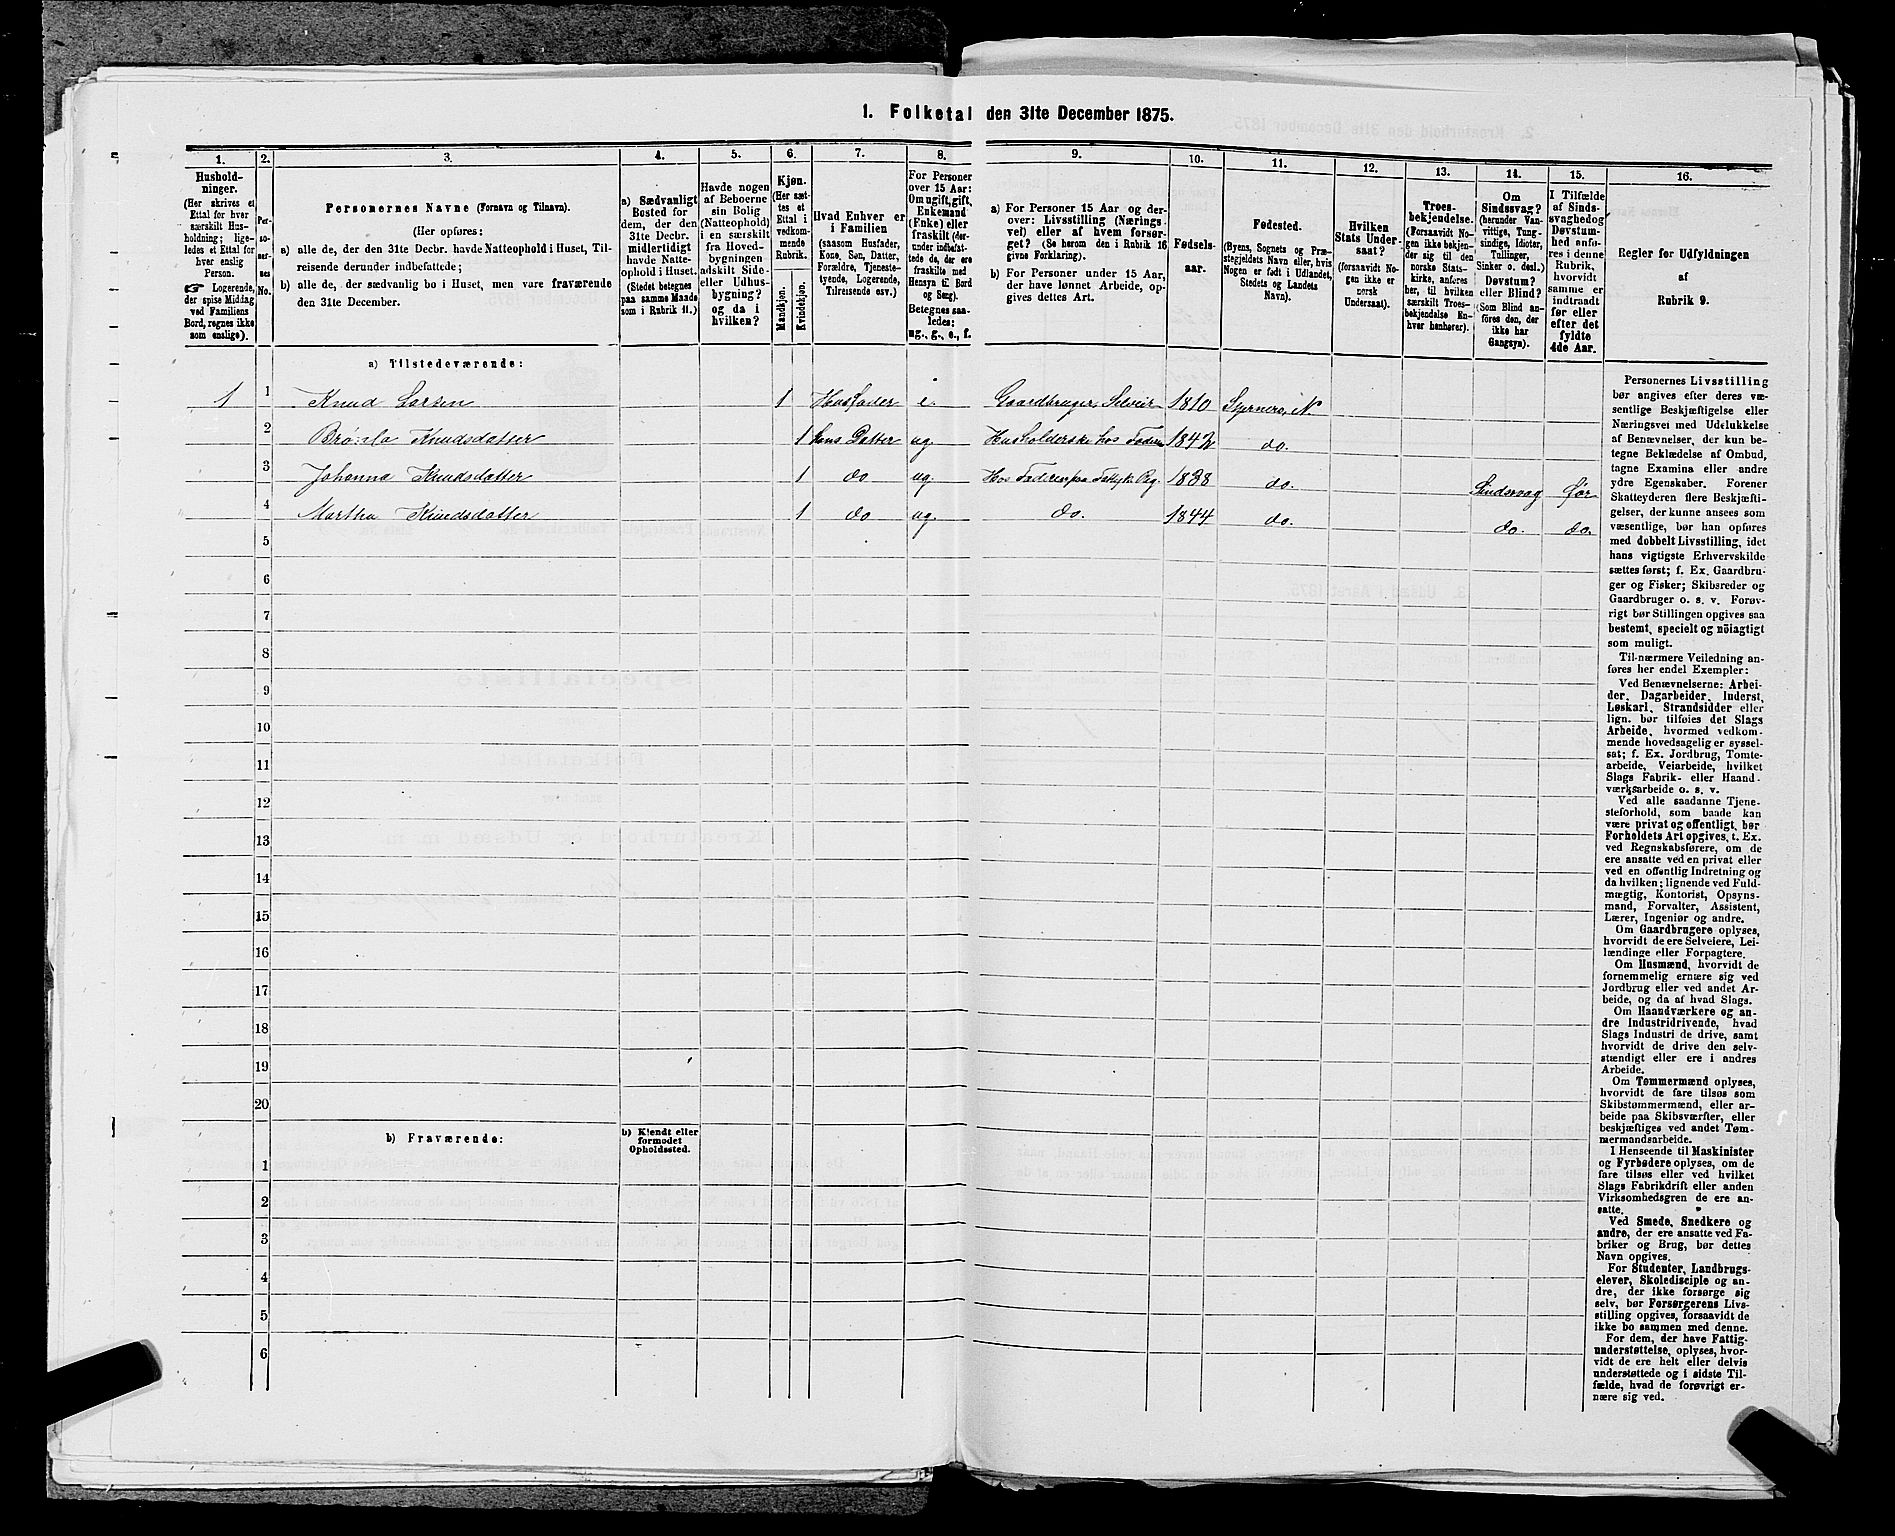 1. Folketal den 31te December 1875.
1. 2. 3. 4. 5. 6. 7. 8. 9. 10. 11. 12. 13. 14. 15. 16.
Hushold-
ninger.
(Her skrives et
Ettal for hver
særskilt Hus-
holdning; lige-
ledes et Ettal for
hver enslig
Person.
☞ Logerende,
der spise Middag
ved Familiens
Bord, regnes ikke
som enslige).
Per-
so-
ner-
nes
No.
Personernes Navne (Fornavn og Tilnavn).
(Her opføres:
a) alle de, der den 31te Decbr. havde Natteophold i Huset, Til-
reisende derunder indbefattede;
b) alle de, der sædvanlig bo i Huset, men vare fraværende
den 31te December.
a) Sædvanligt
Bosted for
dem, der den
31te Decbr.
midlertidigt
havde Natte-
ophold i Huset.
(Stedet betegnes
paa samme Maade
som i Rubrik 11.)
Havde nogen
af Beboerne
sin Bolig
(Natteophold)
i en særskilt
fra Hoved-
bygningen
adskilt Side-
eller Udhus-
bygning?
og da i
hvilken?
Kjøn.
(Her sæt-
tes et
Ettal i
vedkom-
mende
Rubrik.
Mandkjøn.
Kvindekjøn.
Hvad Enhver er
i Familien
(saasom Husfader,
Kone, Søn, Datter,
Forældre, Tjeneste-
tyende, Logerende,
Tilreisende osv.)
For Personer
over 15 Aar:
Om ugift, gift,
Enkemand
(Enke) eller
fraskilt (der-
under indbefat-
tede de, der ere
fraskilte med
Hensyn til Bord
og Seng).
Betegnes saa-
ledes:
ug., g., e., f.
a) For Personer 15 Aar og der-
over: Livsstilling (Nærings-
vei) eller af hvem forsør-
get? (Se herom den i Rubrik 16
givne Forklaring).
b) For Personer under 15 Aar,
der have lønnet Arbeide, op-
gives dettes Art.
Fødsels-
aar.
Fødested.
(Byens, Sognets og Præ-
stegjeldets Navn eller, hvis
Nogen er født i Udlandet,
Stedets og Landets
Navn).
Hvilken
Stats Under-
saat?
(forsaavidt No-
gen ikke er
norsk
Undersaat).
Troes-
bekjendelse.
(Forsaavidt No-
gen ikke bekjen-
der sig til den
norske Stats-
kirke, anføres
her, til hvilken
særskilt Troes-
bekjendelse En-
hver henhører).
Om
Sindssvag?
(herunder Van-
vittige, Tung-
sindige, Idioter,
Tullinger,
Sinker o. desl.)
Døvstum?
eller Blind?
(Som Blind an-
føres den, der
ikke har
Gangsyn).
I Tilfælde
af Sinds-
svaghed og
Døvstum-
hed anfø-
res i denne
Rubrik,
hvorvidt
samme er
indtraadt
før eller
efter det
fyldte
4de Aar.
Regler for Udfyldningen
af
Rubrik 9.
a) Tilstedeværende:
1 1 Knud Larsen 1 Husfader e. Gaardbruger, Selveier 1810 N
2 Knudsdatter 1 hans Datter ug Husholderske hos Faderen 1842 do.
3 Johanna Knudsdatter 1 do ug. Hos Faderen paa 1838 do. Sindssvag før
4 Martha Knudsdatter 1 do ug. do. 1844 do. do. do.
5
6
7
8
9
10
11
12
13
14
15
16
17
18
19
20
b) Fraværende:
b) Kjendt eller
formodet
Opholdssted.
1
2
3
4
5
6
Personernes Livsstilling
bør angives efter deres væ-
sentlige Beskjæftigelse eller
Næringsvei med Udelukkelse
af Benævnelser, der kun be-
tegne Beklædelse af Ombud,
tagne Examina eller andre
ydre Egenskaber. Forener
Skatteyderen flere Beskjæfti-
gelser, der kunne ansees som
væsentlige, bør han opføres
med dobbelt Livsstilling, idet
hans vigtigste Erhvervskilde
sættes først; f. Ex. Gaardbru-
ger og Fisker; Skibsreder og
Gaardbruger o. s. v. Forøv-
rigt bør Stillingen opgives saa
bestemt, specielt og nöiagtigt
som muligt.
Til nærmere Veiledning an-
føres her endel Exempler:
Ved Benævnelserne: Arbei-
der, Dagarbeider, Inderst,
Løskarl, Strandsidder eller
lign. bør tilføies det Slags
Arbeide, hvormed vedkom-
mende hovedsagelig er syssel-
sat; f. Ex. Jordbrug, Tomte-
arbeide, Veiarbeide, hvilket
Slags Fabrik- eller Haand-
værksarbeide o. s. v.
Ved alle saadanne Tjene-
steforhold, som baade kan
være privat og offentligt, bør
Forholdets Art opgives, t. Ex.
ved Regnskabsførere, om de
ere ansatte ved en privat eller
ved en offentlig Indretning og
da hvilken; lignende ved Fuld-
mægtig, Kontorist, Opsyns-
mand, Forvalter, Assistent,
Lærer, Ingeniør og andre.
Om Gaardbrugere oplyses,
hvorvidt de ere Selveiere, Lei-
lændinge eller Forpagtere.
Om Husmænd, hvorvidt de
fornemmelig ernære sig ved
Jordbrug eller ved andet Ar-
beide, og da af hvad Slags.
Om Haandværkere og an-
dre Industridrivende, hvad
Slags Industri de drive, samt
hvorvidt de drive den selv-
stændigt eller ere i andres
Arbeide.
Om Tømmermænd oplyses,
hvorvidt de fare tilsøs som
Skibstømmermænd, eller ar-
beide paa Skibsværfter, eller
beskjæftiges ved andet Tøm-
mermandsarbeide.
I Henseende til Maskinister
og Fyrbødere oplyses, om de
fare tilsøs eller ved hvilket
Slags Fabrikdrift eller anden
Virksomhedsgren de ere an-
satte.
Ved Smede, Snedkere og
andre, der ere ansatte ved Fa-
briker og Brug, bør dettes
Navn opgives.
For Studenter, Landbrugs-
elever, Skoledisciple og an-
dre, der ikke forsørge sig
selv, bør Forsørgerens Livs-
stilling opgives, forsaavidt de
ikke bo sammen med denne.
For dem, der have Fattig-
understøttelse, oplyses, hvor-
vidt de ere helt eller delvis
understøttede og i sidste Til-
fælde, hvad de forøvrigt er-
nære sig ved.